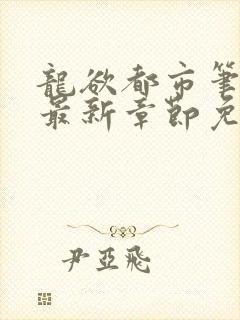 龍欲都市筆
最新章節免
尹亞飛